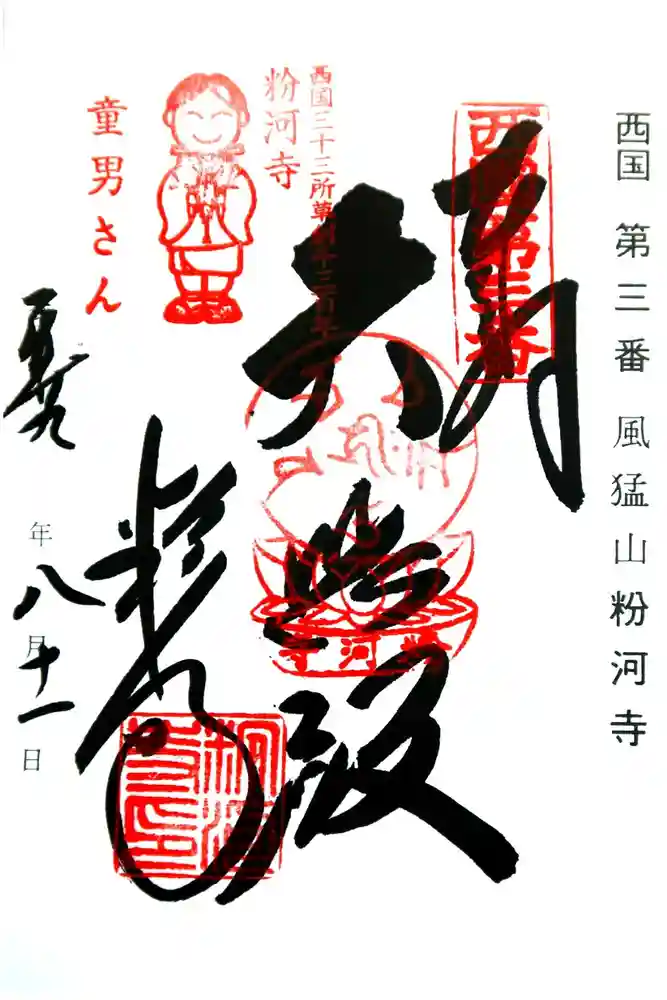 西国 第三番 風猛山粉河寺
西国第三番
奉拝
大悲殿
西国三十三所草創千三百年
粉河寺
童男さん
粉河寺
粉河寺
年八月十一日